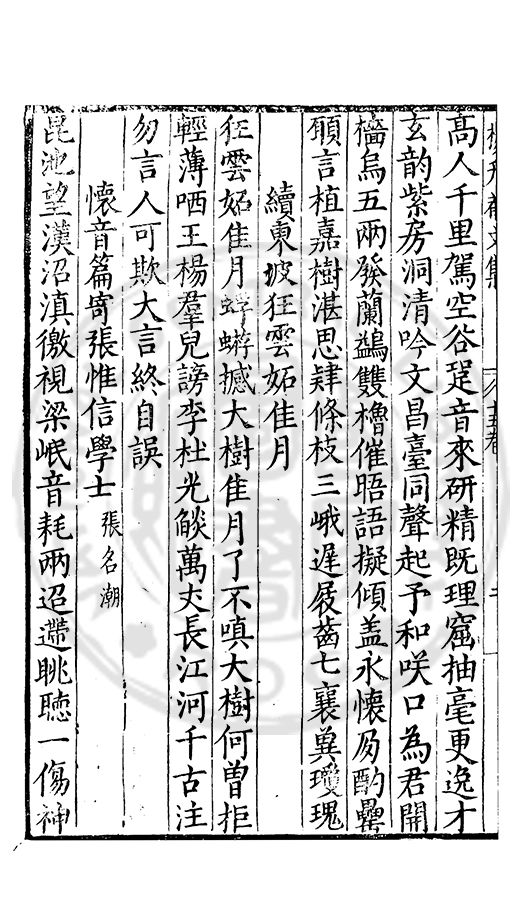 高人千里駕空谷跫音來研精既理窟抽毫更逸才
玄韵紫房洞清吟文昌臺同聲起予和咲口為君開
檣烏五兩發蘭鷁雙櫓催晤語擬傾盖永懷勞酌罍
願言植嘉樹湛思肄條枝三峨遲屐齒七襄兾瓊瑰
續東坡狂雲妬佳月
狂雲妬佳月蜉蝣撼大樹佳月了不嗔大樹何曽拒
輕薄哂王楊羣兒謗李杜光燄萬丈長江河千古注
勿言人可欺大言終自誤
懷音篇寄張惟信學士 張名潮
昆池望漢沼滇徼視梁岷音耗兩迢遰眺聽一傷神